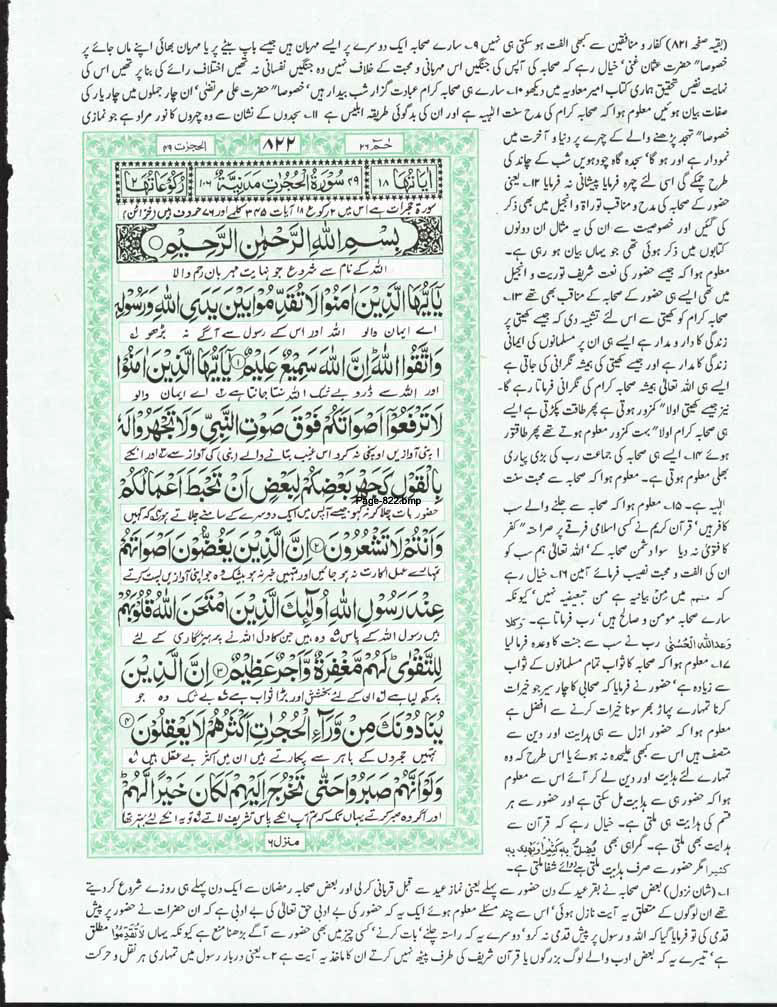 (بقیہ صفحہ ۸۲۱) کفار و منافقین سے کبھی الفت ہو سکتی ہی نہیں ۹۔ سارے صحابہ ایک دوسرے پر ایسے مہربان ہیں جیسے باپ بیٹے پر یا مہربان بھائی اپنے ماں جائے پر
خصوصاً حضرت عثمان غنی' خیال رہے کہ صحابہ کی آپس کی جنگیں اس مہربانی و محبت کے خلاف نہیں وہ جنگیں نفسانی نہ تھیں اختلاف رائے کی بنا پر تھیں اس کی
نہایت نفیس تحقیق ہماری کتاب امیر معاویہ میں دیکھو ۱۰۔ سارے ہی صحابہ کرام عبادت گزار شب بیدار ہیں' خصوصاً حضرت علی مرتضی' ان چار جملوں میں چار یار کی
صفات بیان ہوئیں معلوم ہوا کہ صحابہ کرام کی مدح سنت الٰہیہ ہے اور ان کی بدگوئی طریقہ ابلیس ہے ۱۱۔ سجدوں کے نشان سے وہ چہروں کا نور مراد ہے جو نمازی
خصوصاً تہجد پڑھنے والے کے چہرے پر دنیا و آخرت میں
نمودار ہے اور ہو گا' سجدہ گاہ چودہویں شب کے چاند کی
طرح چمکے گی اسی لئے چہرہ فرمایا پیشانی نہ فرمایا ۱۲۔ یعنی
حضور کے صحابہ کی مدح و مناقب توراۃ و انجیل میں بھی ذکر
کی گئیں اور خصوصیت سے ان کی یہ مثال ان دونوں
کتابوں میں ذکر ہوئی تھی جو یہاں بیان ہو رہی ہے۔
معلوم ہوا کہ جیسے حضور کی نعت شریف توریت و انجیل
میں تھی ایسے ہی حضور کے صحابہ کے مناقب بھی تھے ۱۳۔
صحابہ کرام کو کھیتی سے اس لئے تشبیہ دی کہ جیسے کھیتی پر
زندگی کا دار و مدار ہے ایسے ہی ان پر مسلمانوں کی ایمانی
زندگی کا مدار ہے اور جیسے کھیتی کی ہمیشہ نگرانی کی جاتی ہے
ایسے ہی اللہ تعالیٰ ہمیشہ صحابہ کرام کی نگرانی فرماتا رہے گا۔
نیز جیسے کھیتی اولاً کمزور ہوتی ہے پھر طاقت پکڑتی ہے ایسے
ہی صحابہ کرام اولاً بہت کمزور معلوم ہوتے تھے پھر طاقتور
ہوئے ۱۴۔ ایسے ہی صحابہ کی جماعت رب کی بڑی پیاری
بھلی معلوم ہوتی ہے۔ معلوم ہوا کہ صحابہ سے محبت سنت
الٰہیہ ہے۔ ۱۵۔ معلوم ہوا کہ صحابہ سے جلنے والے سب
کافر ہیں' قرآن کریم نے کسی اسلامی فرقے پر صراحتہ" کفر
کا فتویٰ نہ دیا سوا دشمن صحابہ کے' اللہ تعالیٰ ہم سب کو
ان کی الفت و محبت نصیب فرمائے آمین ۱۶۔ خیال رہے
کہ منہم میں مِنْ بیانیہ ہے من تبعیضیہ نہیں' کیونکہ
سارے صحابہ مومن و صالح ہیں' رب فرماتا ہے۔ وَكُلًّا
وَعَدَ اللهُ الْحُسْنٰى رب نے سب سے جنت کا وعدہ فرما لیا
۱۷۔ معلوم ہوا کہ صحابہ کا ثواب تمام مسلمانوں کے ثواب
سے زیادہ ہے' حضور نے فرمایا کہ صحابی کا چار سیر جو خیرات
کرنا تمہارے پہاڑ بھر سونا خیرات کرنے سے افضل ہے
معلوم ہوا کہ حضور ازل سے ہی ہدایت اور دین سے
متصف ہیں اس سے کبھی علیحدہ نہ ہوئے یا اس طرح کہ وہ
تمہارے لئے ہدایت اور دین لے کر آئے اس سے معلوم
ہوا کہ حضور ہی سے ہدایت مل سکتی ہے اور حضور سے ہر
قسم کی ہدایت ہی ملتی ہے۔ خیال رہے کہ قرآن سے
ہدایت بھی ملتی ہے۔ گمراہی بھی يُضِلُّ بِهٖ كَثِيْرًا وَّيَهْدِيْ بِهٖ
كَثِيْرًا مگر حضور سے صرف ہدایت ملتی ہے دوائے شفا ملتی ہے۔
الحجرٰت ۴۹
۸۲۲
حٰمٓ ۲۶
اٰیاتُھا ۱۸
۴۹ سُوْرَةُ الْحُجُرٰتِ مَدَنِيَّةٌ ۱۰۶
رکوعاتُھا ۲
سورۃ حجرات ہے اس میں ۲ رکوع ۱۸ آیات ۳۴۵ کلمے اور ۱۴۷۶ حروف ہیں (خزائن)
بِسْمِ اللهِ الرَّحْمٰنِ الرَّحِيْمِ
اللہ کے نام سے شروع جو نہایت مہربان رحم والا
يٰٓاَيُّهَا الَّذِيْنَ اٰمَنُوْا لَا تُقَدِّمُوْا بَيْنَ يَدَيِ اللهِ وَرَسُوْلِهٖ
اے ایمان والو اللہ اور اس کے رسول سے آگے نہ بڑھو
وَاتَّقُوا اللهَ ؕ اِنَّ اللهَ سَمِيْعٌ عَلِيْمٌ ① يٰٓاَيُّهَا الَّذِيْنَ اٰمَنُوْا
اور اللہ سے ڈرو بے شک اللہ سنتا جانتا ہے اے ایمان والو
لَا تَرْفَعُوْٓا اَصْوَاتَكُمْ فَوْقَ صَوْتِ النَّبِيِّ وَلَا تَجْهَرُوْا لَهٗ
اپنی آوازیں اونچی نہ کرو اس غیب بتانے والے (نبی) کی آواز سے اور انکے
بِالْقَوْلِ كَجَهْرِ بَعْضِكُمْ لِبَعْضٍ اَنْ تَحْبَطَ اَعْمَالُكُمْ
Page-822.bmp
حضور بات چلا کر نہ کہو جیسے آپس میں ایک دوسرے کے سامنے چلاتے ہو کہ کہیں
وَاَنْتُمْ لَا تَشْعُرُوْنَ ② اِنَّ الَّذِيْنَ يَغُضُّوْنَ اَصْوَاتَهُمْ
تمہارے عمل اکارت نہ ہو جائیں اور تمہیں خبر نہ ہو بیشک وہ جو اپنی آوازیں پست کرتے
عِنْدَ رَسُوْلِ اللهِ اُولٰٓئِكَ الَّذِيْنَ امْتَحَنَ اللهُ قُلُوْبَهُمْ
ہیں رسول اللہ کے پاس وہ ہیں جن کا دل اللہ نے پرہیزگاری کے لئے
لِلتَّقْوٰى ؕ لَهُمْ مَّغْفِرَةٌ وَّاَجْرٌ عَظِيْمٌ ③ اِنَّ الَّذِيْنَ
پرکھ لیا ہے ان کے لئے بخشش اور بڑا ثواب ہے بے شک وہ جو
يُنَادُوْنَكَ مِنْ وَّرَآءِ الْحُجُرٰتِ اَكْثَرُهُمْ لَا يَعْقِلُوْنَ ④
تمہیں حجروں کے باہر سے پکارتے ہیں ان میں اکثر بے عقل ہیں
وَلَوْ اَنَّهُمْ صَبَرُوْا حَتّٰى تَخْرُجَ اِلَيْهِمْ لَكَانَ خَيْرًا لَّهُمْ ؕ
اور اگر وہ صبر کرتے یہاں تک کہ تم آپ انکے پاس تشریف لاتے تو یہ انکے لئے بہتر تھا
منزل ۶
۱۔ (شان نزول) بعض صحابہ نے بقر عید کے دن حضور سے پہلے یعنی نماز عید سے قبل قربانی کر لی اور بعض صحابہ رمضان سے ایک دن پہلے ہی روزے شروع کر دیتے
تھے ان لوگوں کے متعلق یہ آیت نازل ہوئی' اس سے چند مسئلے معلوم ہوئے ایک یہ کہ حضور کی بے ادبی حق تعالیٰ کی بے ادبی ہے کہ ان حضرات نے حضور پر پیش
قدمی کی تو فرمایا گیا کہ اللہ و رسول پر پیش قدمی نہ کرو' دوسرے یہ کہ راستہ چلنے' بات کرنے' کسی چیز میں بھی حضور سے آگے بڑھنا منع ہے کیونکہ یہاں لَا تُقَدِّمُوْا مطلق
ہے' تیسرے یہ کہ بعض ادب والے لوگ بزرگوں یا قرآن شریف کی طرف پیٹھ نہیں کرتے ان کا ماخذ یہ آیت ہے ۲۔ یعنی دربار رسول میں تمہاری ہر نقل و حرکت